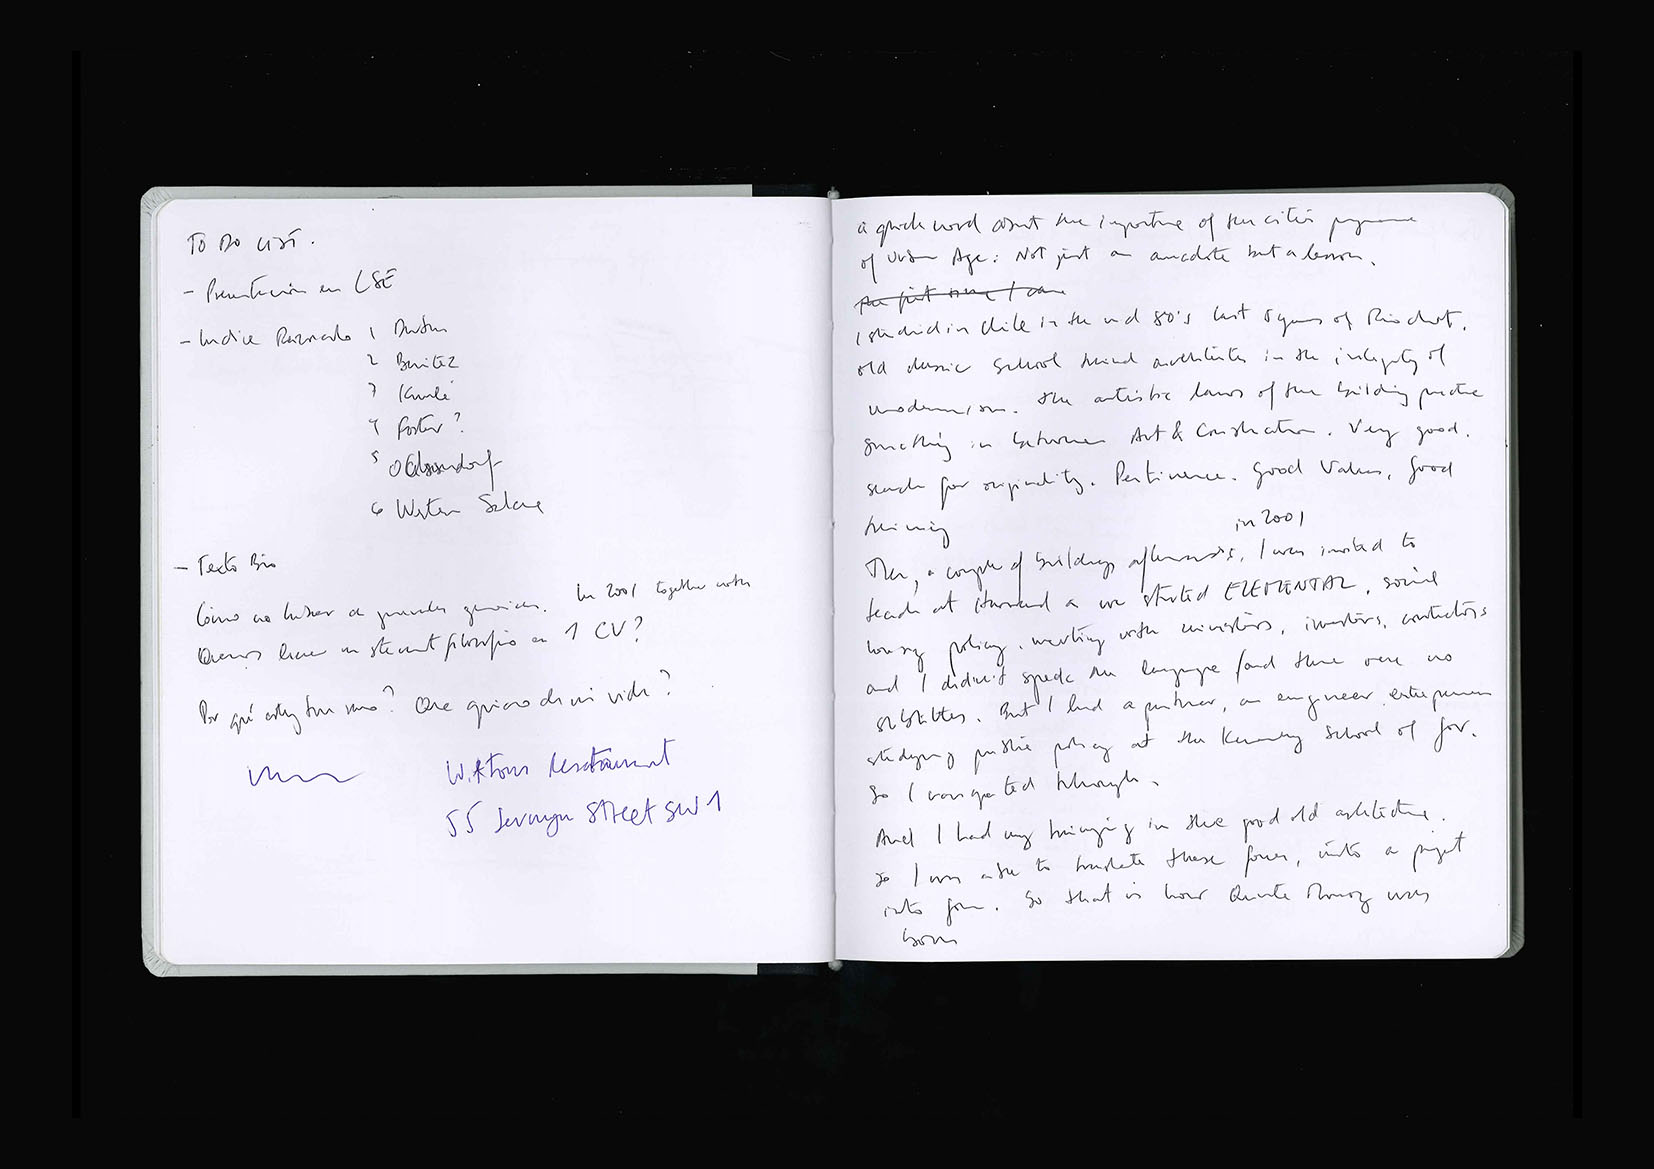 TO DO LIST.
- Presentación en LSE
- Indice Razonado 1
2 Benitez
3
4 Foster?
5
6
- Texto Bio
Cómo no hablar de grandes                 In 2001 together with
Queremos hacer un statement filosófico en 1 CV?
Por qué estoy                 ? Que quiero de mi vida?
Wiltons Restaurant
55 Jermyn Street SW1
a quick word about the importance of the cities programme
of Urban Age: Not just an anecdote but a lesson.
the first time I came
I studied in Chile in the mid 80's last 5 years of Pinochet.
old classic School trained architects in the integrity of
modernism. the artistic laws of the building practice
something in between Art & Construction. Very good.
search for originality. Pertinence. Good Values, Good
training
in 2001
Then, a couple of buildings afterwards, I was invited to
teach at Harvard a we started ELEMENTAL, social
housing policy, meeting with ministers, investors, contractors
and I didn't speak the language (and there were no
subtitles. But I had a partner, an engineer entrepreneur
studying public policy at the Kennedy School of Gov.
So I navigated through.
And I had my training in the good old architecture.
so I was able to translate these forces, into a project
into form. So that is how Quinta Monroy was
born